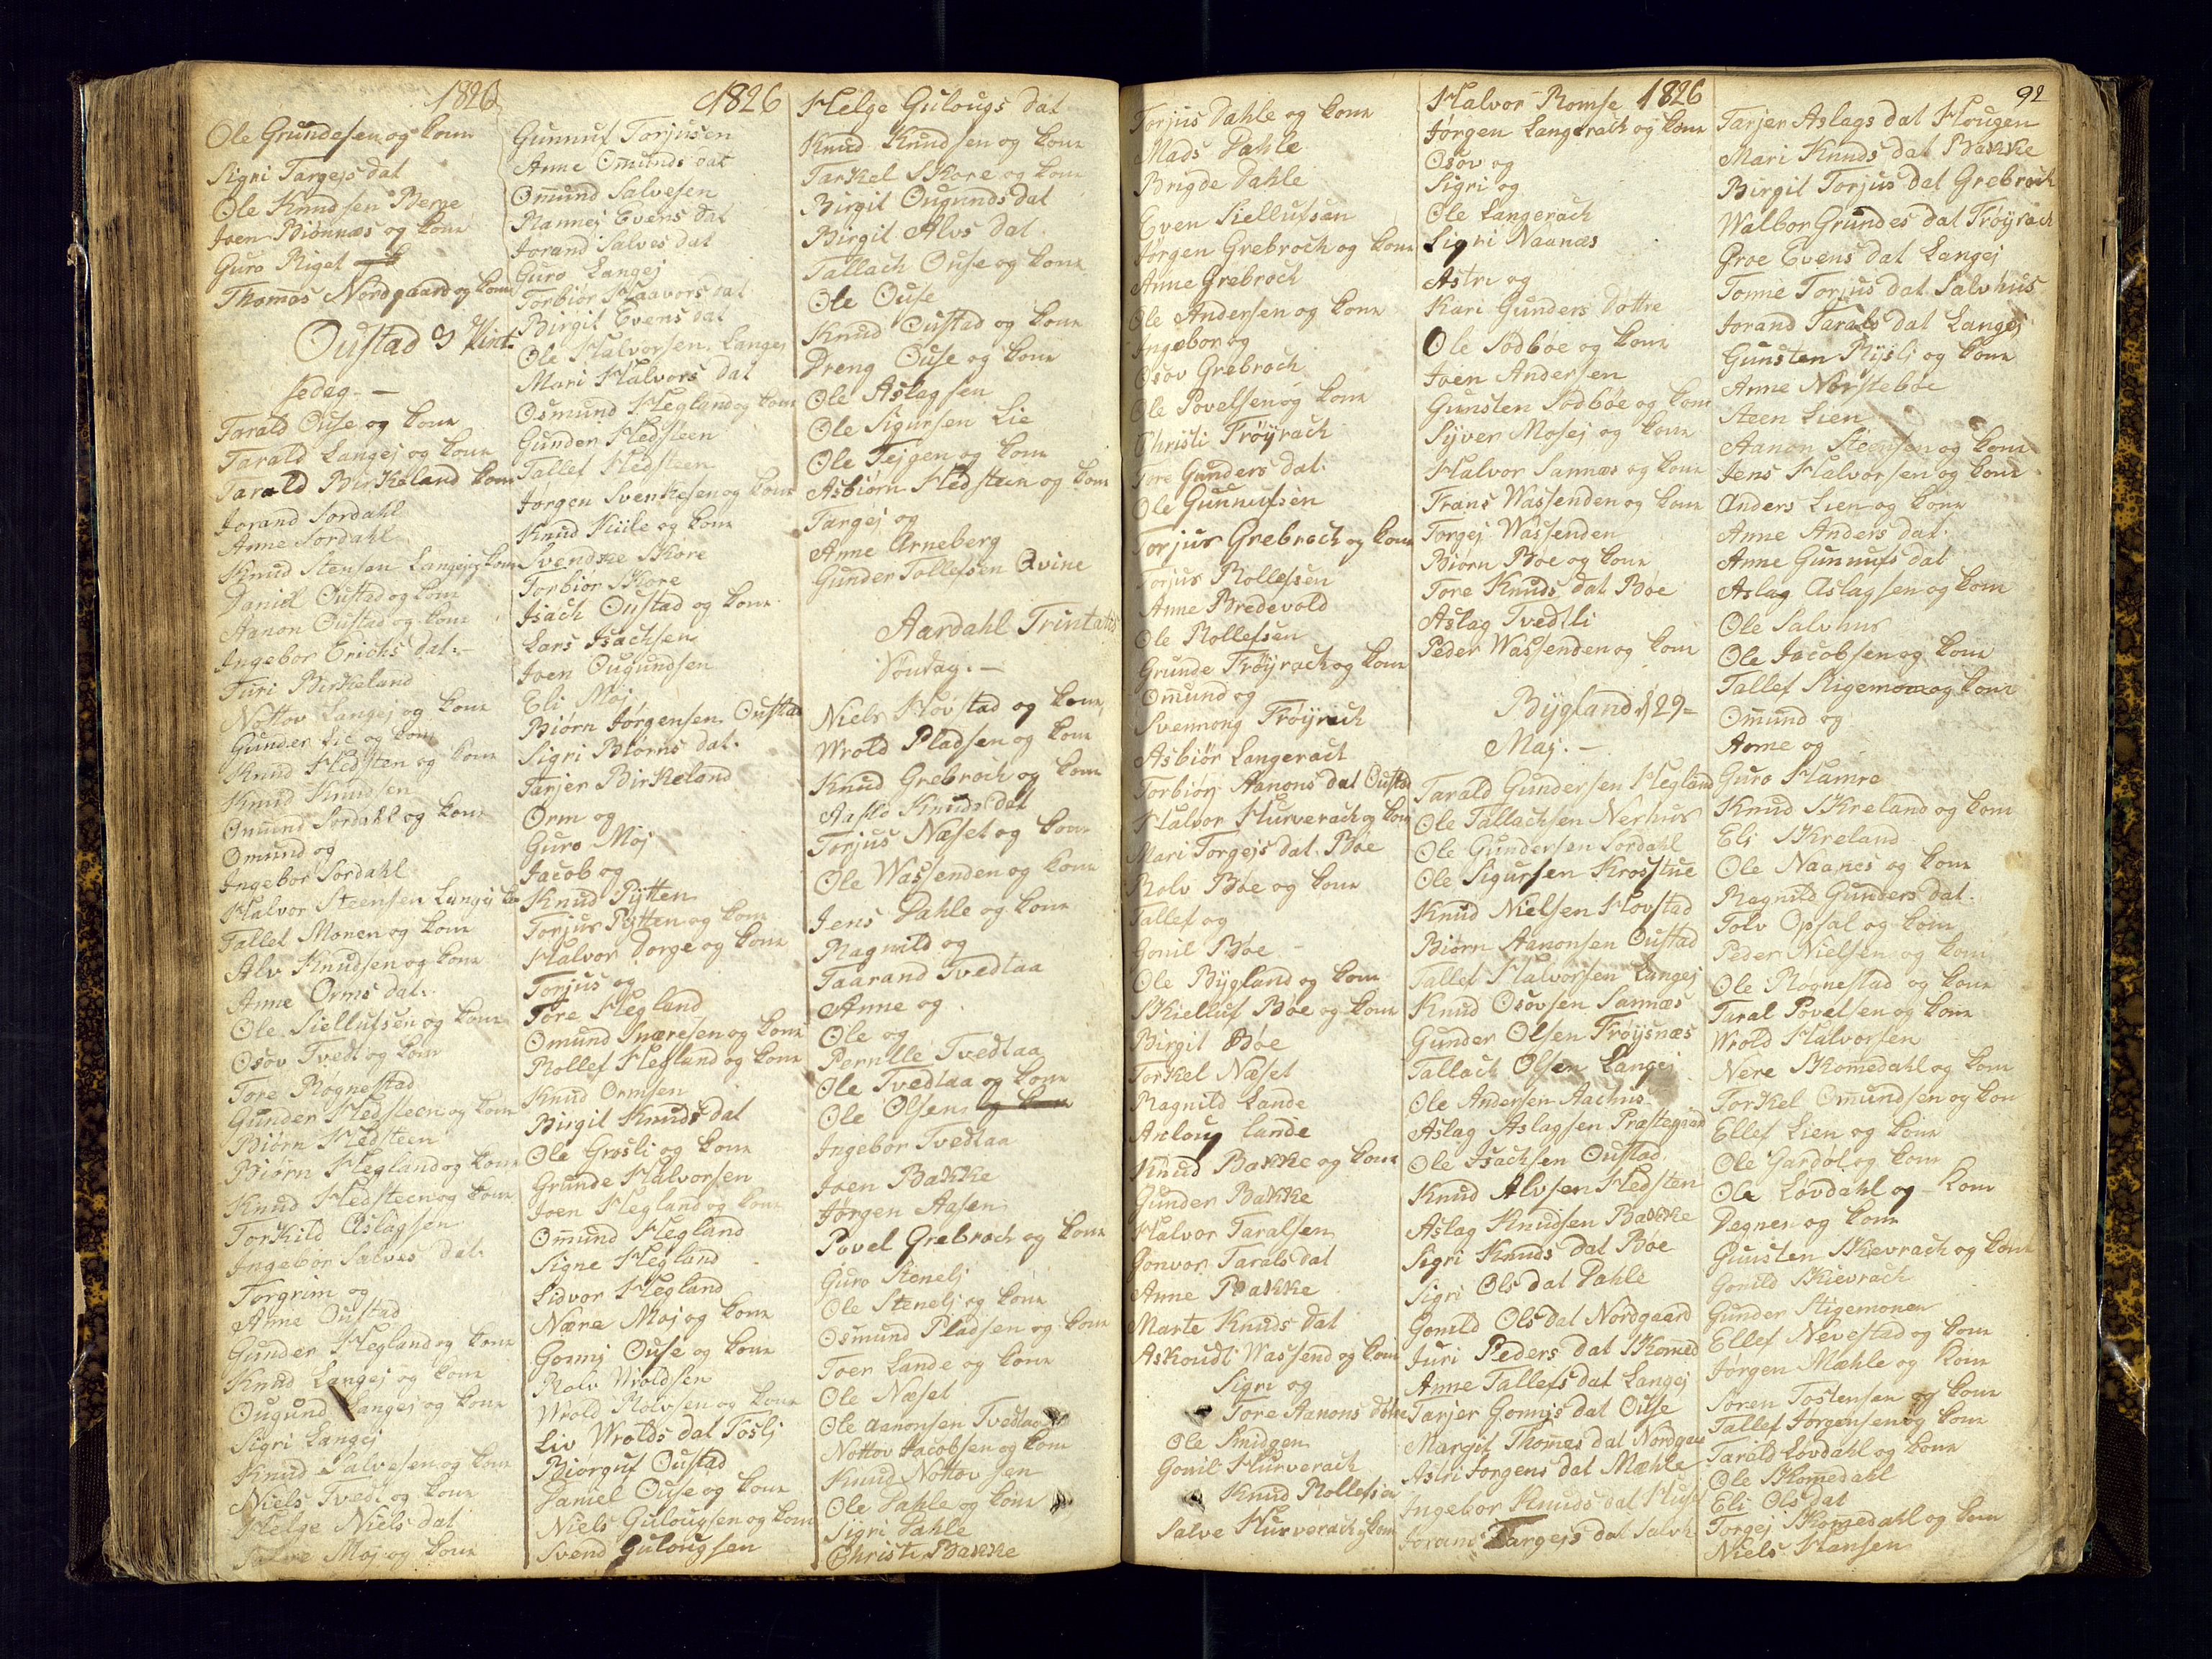 1826
Ole Grundesen og kone
Sigri Targejs dat
Ole Knudsen Berge
Joen Biønnæs og kone
Guro Riget
Thomas Nordgaard og kone
Oustad 3 Pint:
sedag. -
Tarald Ouse og kone
Tarald Langej og kone
Tarald Birkeland kone
Jorand Sordahl
Anne Sordahl
Knud Stensen Langej og kone
Daniel Oustad og kone
Aanon Oustad og kone
Ingebor Erichs dat:-
Turi Birkeland
Nottov Langej og kone
Gunder Lie og kone
Knud Hedsten og kone
Knud Knudsen
Omund Sordahl og kone
Omund og
Ingebor Sordahl
Halvor Steensen Langej
Tallef Monen og kone
Alv Knudsen og kone
Anne Orms dat.
Ole Siellufsen og kone
Osov Tvedt og kone
Tore Rognestad
Gunder Hedsteen og kone
Biørn Hedsteen
Biørn Hegland og kone
Knud Hedsteen og kone
Torkild Aslagsen
Ingebor Salves dat.
Torgrim og
Anne Oustad
Gunder Hegland og kone
Knud Langej og kone
Ougund Langej og kone
Sigri Langej
Knud Salvesen og kone
Niels Tvedt og kone
Helge Niels dat
Moj og kone
1826
Gunnuf Torjusen
Anne Omunds dat
Omund Salvesen
Rannej Evens dat
Jorand Salves dat
Guro Langej
Torbior Haavors dat
Birgit Evens dat
Ole Halvorsen Langej
Mari Halvors dat
Osmund Hegland og kone
Gunder Hedsteen
Tallef Hedsteen
Jørgen Svenkesen og kone
Knud Kiile og kone
Svendke Skore
Torbior Skore
Isach Oustad og kone
Lars Isachsen
Joen Ougundsen
Eli Moj
Biørn Jørgensen Oustad
Sigri Biørns dat.
Tarjer Birkeland
Orm og
Guro Moj
Jacob og
Knud Pytten
Torjus Pytten og kone
Halvor Dorge og kone
Torjus og
Tore Hegland
Omund Snaresen og kone
Rollef Hegland og kone
Knud Ormsen
Birgit Knuds dat
Ole Grosli og kone
Grunde Halvorsen
Joen Hegland og kone
Omund Hegland
Signe Hegland
Lidvor Hegland
Nære Moj og kone
Gonnj Ouse og kone
Rolv Wroldsen
Wrold Rolvsen og kone
Liv Wrolds dat Foslj
Biorguf Oustad
Daniel Ouse og kone
Niels Gulougsen og kone
Svend Gulougsen
Helge Gulougs dat
Knud Knudsen og kone
Tarkel Skore og kone
Birgit Ougunds dat
Birgit Alvs dat.
Tallach Ouse og kone
Ole Ouse
Knud Oustad og kone
Dreng Ouse og kone
Ole Aslagsen
Ole Sigursen Lie
Ole Tejgen og kone
Asbiørn Hedsteen og kone
Targej og
Anne Arneberg
Gunder Tollefsen Qvine
Aardahl Trintatis
Søndag. -
Niels Hovstad og kone
Wrold Pladsen og kone
Knud Grebroch og kone
Aaslo Knuds dat
Torjus Næset og kone
Ole Wassenden og kone
Jens Dahle og kone
Ragnild og
Taarand Tvedtaa
Anne og
Ole og
Pernille Tvedtaa
Ole Tvedtaa og kone
Ole Olsen og kone
Ingebor Tvedtaa
Joen Bakke
Jørgen Aasen
Povel Grebroch og kone
Guro Stenelj
Ole Stenelj og kone
Osmund Pladsen og kone
Toer Lande og kone
Ole Næset
Ole Aanonsen Tvedtaa
Nottov Jacobsen og kone
Knud Nottovsen
Ole Dahle og kone
Sigri Dahle
Christi Bakke
Torjus Dahle og kone
Mads Dahle
Brigde Dahle
Even Siellufsen
Jørgen Grebroch og kone
Anne Grebroch
Ole Andersen og kone
Ingebor og
Osov Grebroch
Ole Povelsen og kone
Christi Frøyrach
Tore Gunders dat.
Ole Gunnufsen
Torjus Grebroch og kone
Torjus Rollefsen
Anne Bredevold
Ole Rollefsen
Grunde Frøyrach og kone
Omund og
Svennong Frøyrach
Asbiør Langerach
Torbiør Aanons dat Oustad
Halvor Hurverach og kone
Mari Torgejs dat. Bøe
Rolv Bøe og kone
Tallef og
Gonil Bøe
Ole Bygland og kone
Skielluf Bøe og kone
Birgit Bøe
Torkel Næset
Ragnild Lande
Anloug Lande
Knud Bakke og kone
Gunder Bakke
Halvor Taralsen
Gonvor Tarals dat
Anne Bakke
Marte Knuds dat
Askoudt Wassend og kone
Sigri og
Tore Aanons døtre
Ole Smidgen
Gonil Hurverach
Knud Rollefsen
Salve Hurverach og kone
Halvor Romse 1826
Jørgen Langerach og kone
Osov og
Sigri og
Ole Langerach
Sigri Naanæs
Astri og
Kari Gunders Døttre
Ole Sodbøe og kone
Joen Andersen
Gunsten Sodbøe og kone
Syver Mosej og kone
Halvor Sannæs og kone
Frans Wassenden og kone
Torgej Wassenden
Biørn Bøe og kone
Tore Knuds dat Bøe
Aslag Tvedtli
Peder Wassenden og kone
Bygland d 29=
Maj. -
Tarald Gundersen Hegland
Ole Tallachsen Nerhus
Ole Gundersen Sordahl
Ole Sigursen Krosstue
Knud Nielsen Hovstad
Biørn Aanonsen Oustad
Tallef Halvorsen Langej
Knud Osovsen Sannæs
Gunder Olsen Frøysnæs
Tallach Olsen Langej
Ole Andersen Aachus
Aslag Aslagsen Præstegaar
Ole Isachsen Oustad
Knud Alvsen Hedsten
Aslag Knudsen Bakke
Sigri Knuds dat Bøe
Sigri Ols dat Dahle
Gonild Ols dat Nordgaard
Juri Peders dat Skomed
Anne Tallefs dat Langej
Tarjer Gonnjs dat Ouse
Margit Thomes dat Nordgaa
Astri Jorgens dat Mæhle
Ingebor Knuds dat
Jorand Targejs dat Salvh
92
Tarjer Aslags dat Hougen
Mari Knuds dat Bakke
Birgit Torjus dat Grebroch
Walbor Grundes dat Frøyrach
Groe Evens dat Langej
Tonne Torjus dat Salvhus
Jorand Tarals dat Langej
Gunsten Ryslj og kone
Anne Norstebøe
Steen Lien
Aanon Steensen og kone
Jens Halvorsen og kone
Anders Lien og kone
Anne Anders dat.
Anne Gunnufs dat
Aslag Aslagsen og kone
Ole Salvhus
Ole Jacobsen og kone
Tallef Stigemoen og kone
Omund og
Anne og
Guro Hamre
Knud Skreland og kone
Eli Skreland
Ole Naanes og kone
Ragnild Gunders dat.
Tolv Opsal og kone
Peder Nielsen og kone
Ole Rognestad og kone
Taral Povelsen og kone
Wrold Halvorsen
Nere Skomedahl og kone
Torkel Omundsen og kon
Ellef Lien og kone
Ole Gardøl og kone
Ole Lovdahl og kone
Degnen og kone
Gunsten Skievrach og kone
Gonild Skievrach
Gunder Stigemonen
Ellef Nevestad og kone
Jørgen Mæhle og kone
Søren Tostensen og kone
Tallef Jørgensen og kone
Tarald Lovdahl og kone
Ole Skomedahl
Eli Ols dat
Torgej Skomedahl og kone
Niels Hansen